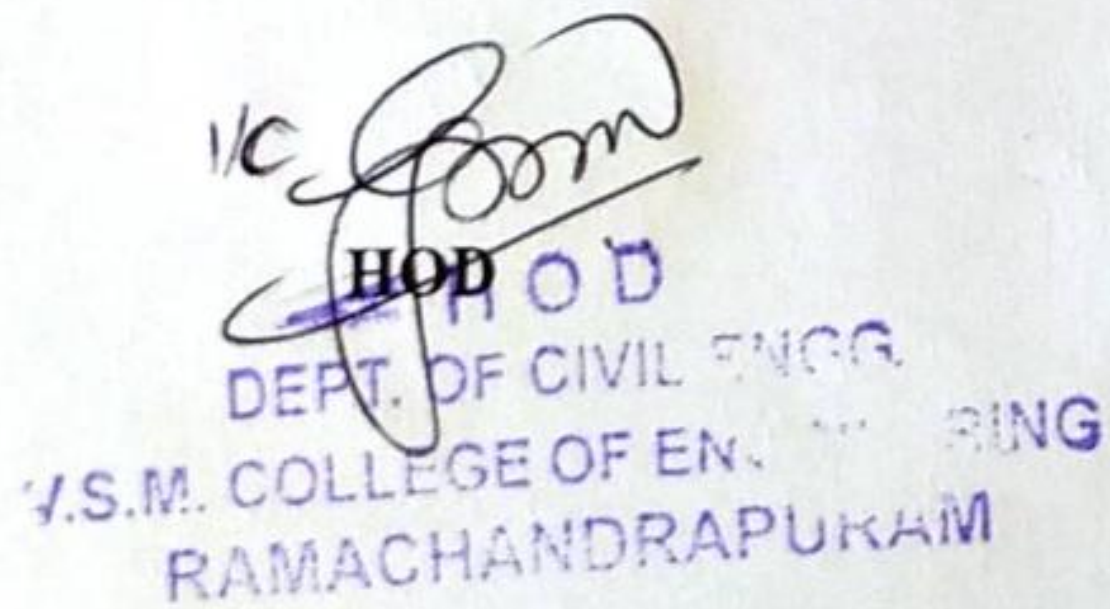 I/C
HOD
H O D
DEPT. OF CIVIL ENGG.
V.S.M. COLLEGE OF
RAMACHANDRAPURAM